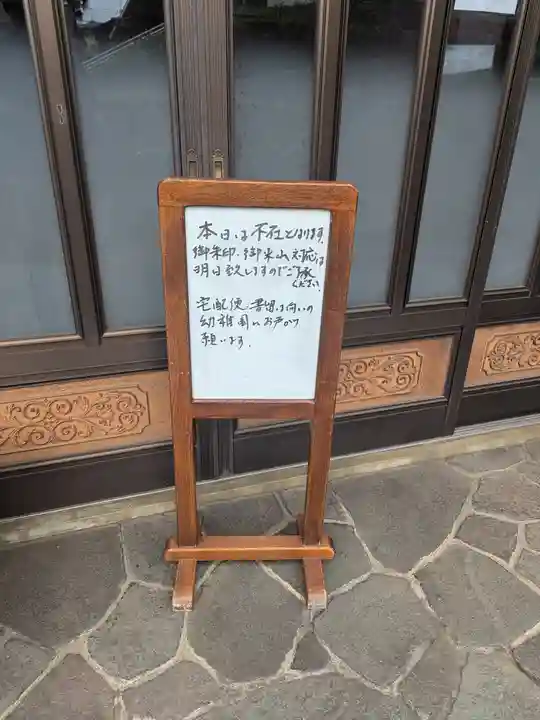 本日は不在となります。
御朱印・御来山対応は
明日致しますのでご了承
ください。
宅配便、書留は向いの
幼稚園にお声がけ
願います。